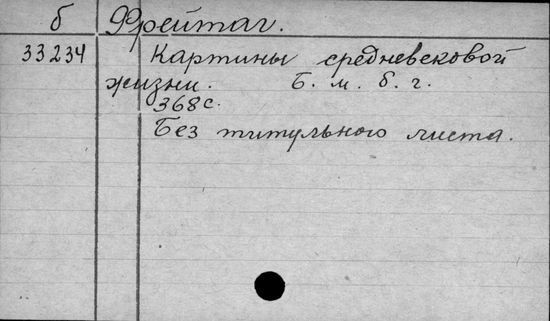 б Фрейтаг.
33234 Картины средневековой
жизни. Б. м. б. г.
368 с.
Без титульного листа.